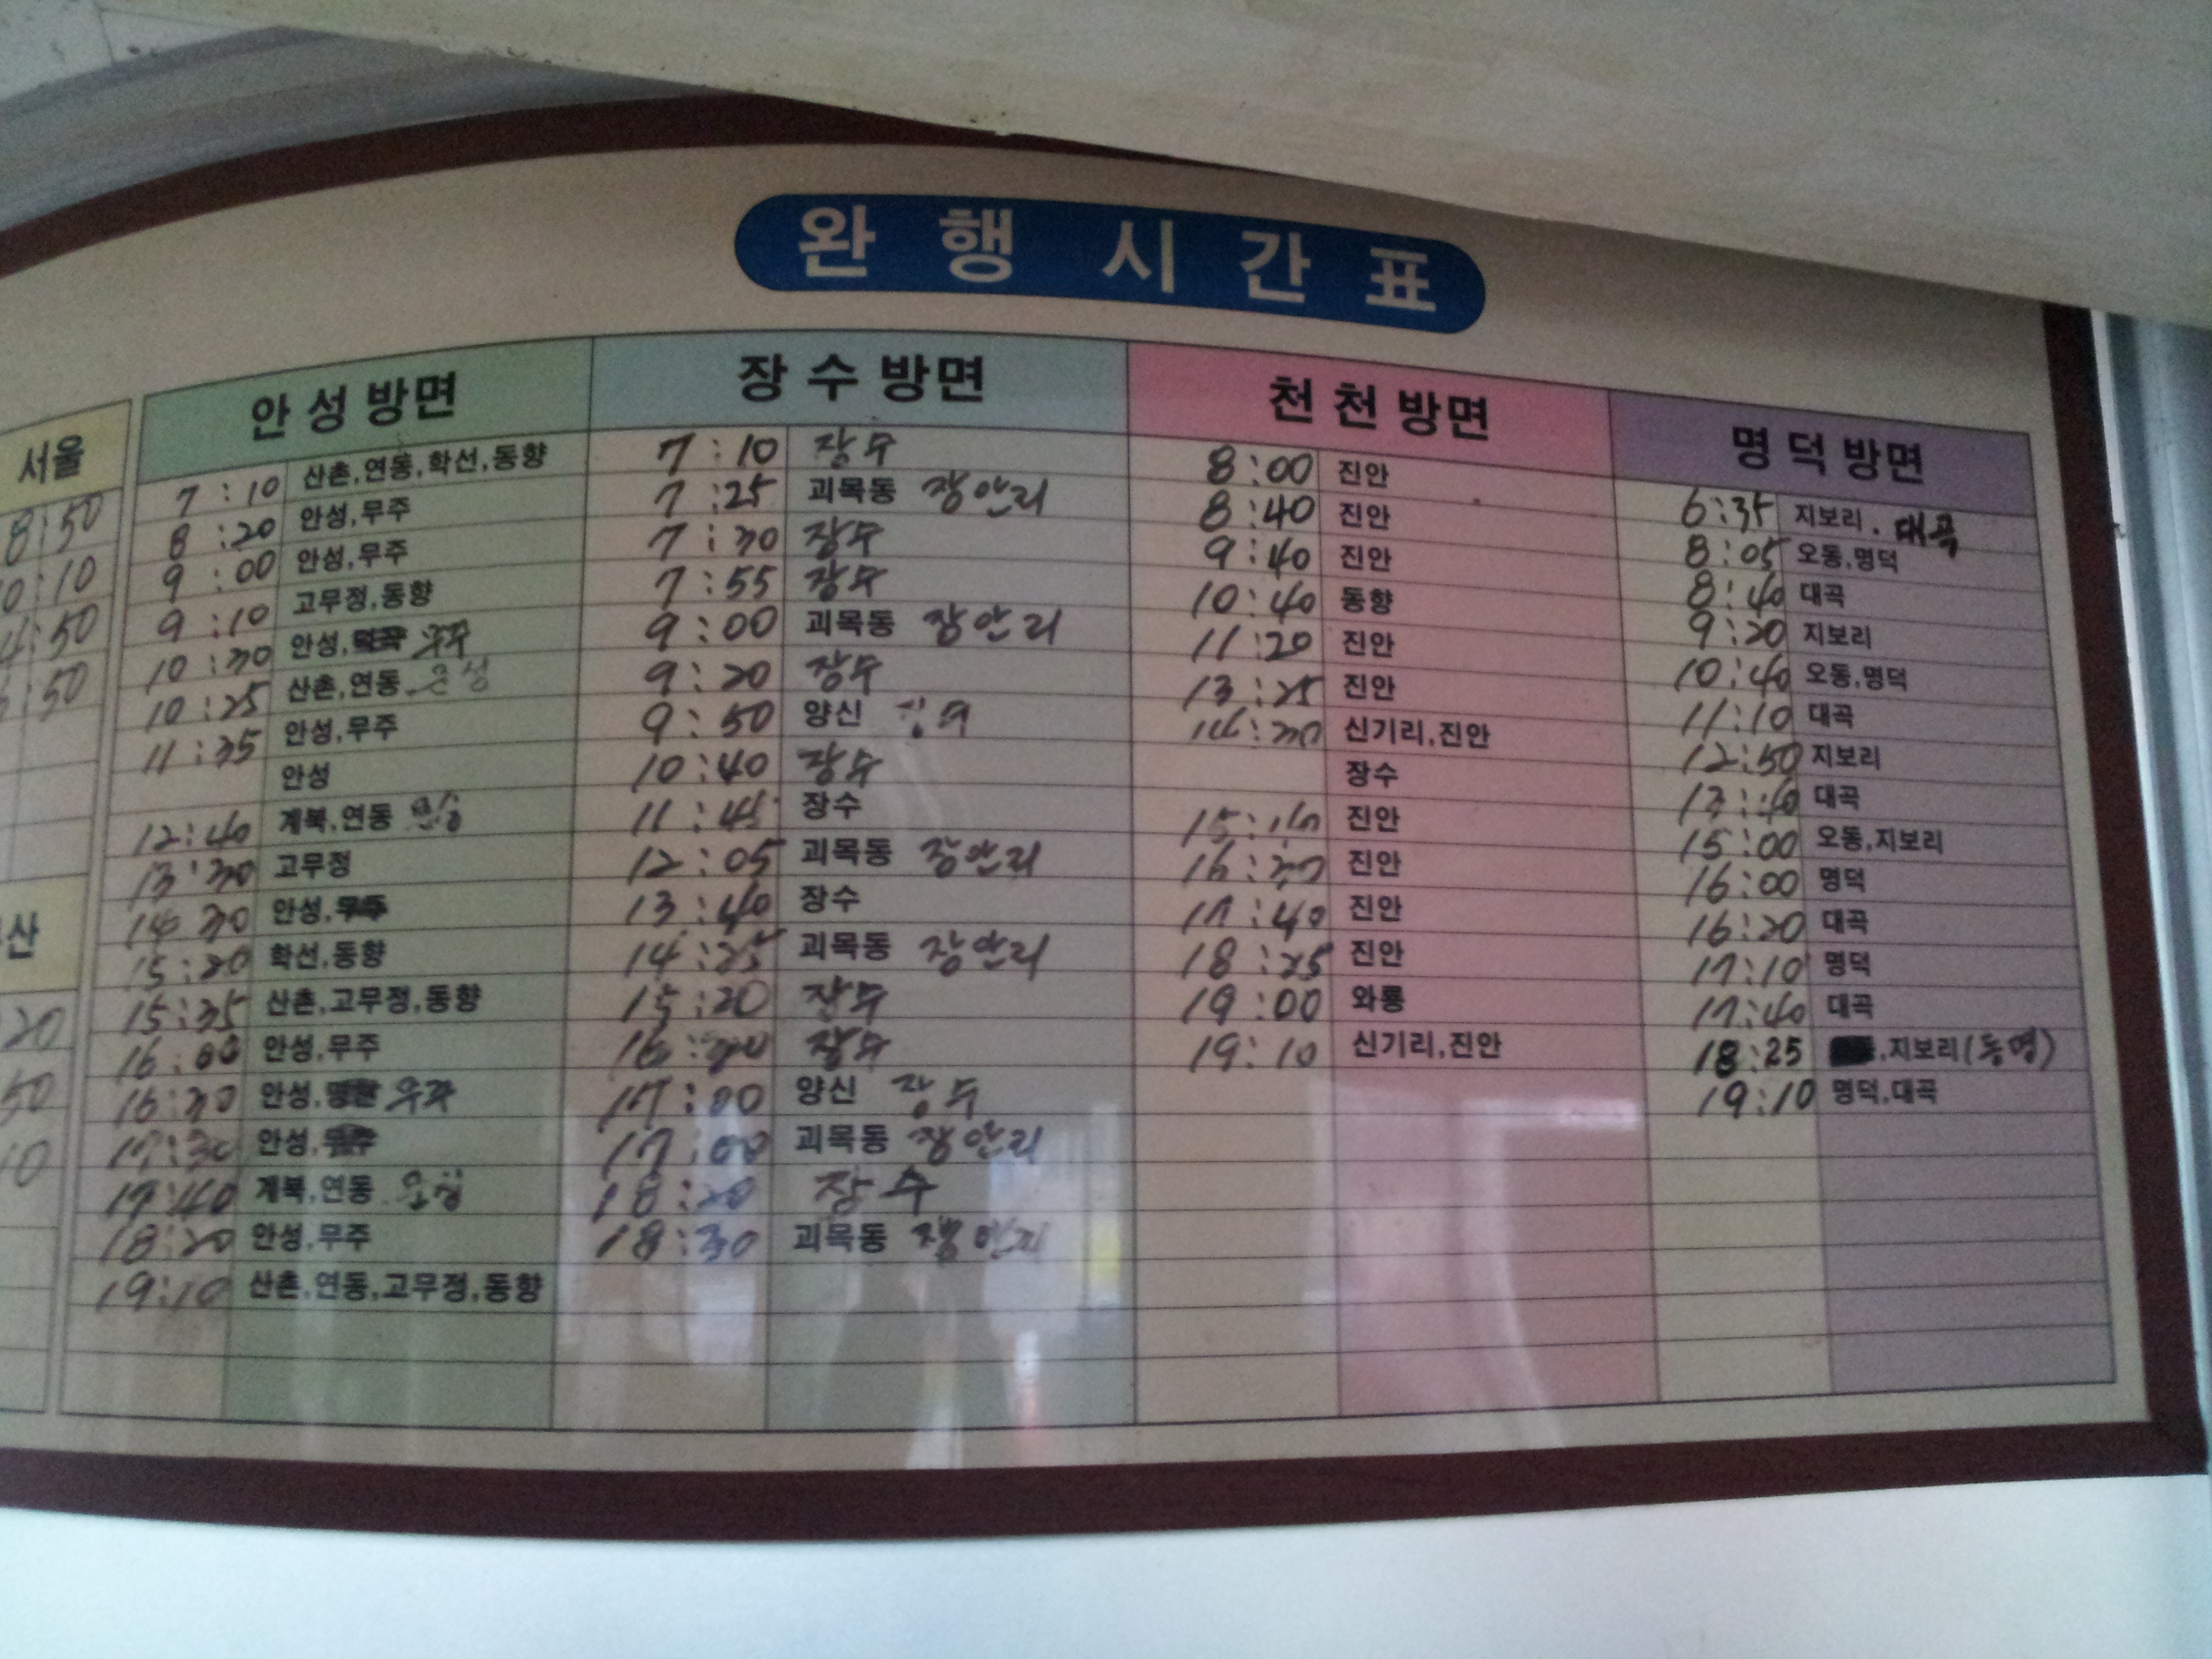 완행시간표
서울
8:50
안성방면
7:10 산촌,연동,학선,동향
8:20 안성,무주
9:00 안성,무주
9:10 고무정,동향
10:30 안성, 무주
10:25 산촌,연동
11:35 안성,무주
안성
12:40 계북,연동
13:30 고무정
14 30 안성,
15:20 학선,동향
15:35 산촌,고무정,동향
16:00 안성,무주
16:30 안성,
17:30 안성,
17:40 계북,연동
18:20 안성,무주
19:10 산촌,연동,고무정,동향
장수방면
7:10 장수
7:25 괴목동 장안리
7:30 장수
7:55 장수
9:00 괴목동 장안리
9:20 장수
9:50 양신
10:40 장수
11:45 장수
12:05 괴목동 장안리
13:40 장수
14:25 괴목동 장안리
15:20 장수
장수
17:00 양신 장수
17:00 괴목동 장안리
18:20 장수
18:30 괴목동 장안리
천천방면
8:00 진안
8:40 진안
9:40 진안
10:40 동향
11:20 진안
13:25 진안
14:30 신기리,진안
장수
진안
진안
17:40 진안
18:25 진안
19:00 와룡
19:10 신기리,진안
명덕방면
6:35 지보리. 대곡
8:05 오동,명덕
8:40 대곡
9:20 지보리
10:40 오동,명덕
11:10 대곡
12:50 지보리
13:40 대곡
15:00 오동,지보리
16:00 명덕
16:20 대곡
17:10 명덕
17:40 대곡
18:25 ,지보리(동명)
19:10 명덕,대곡